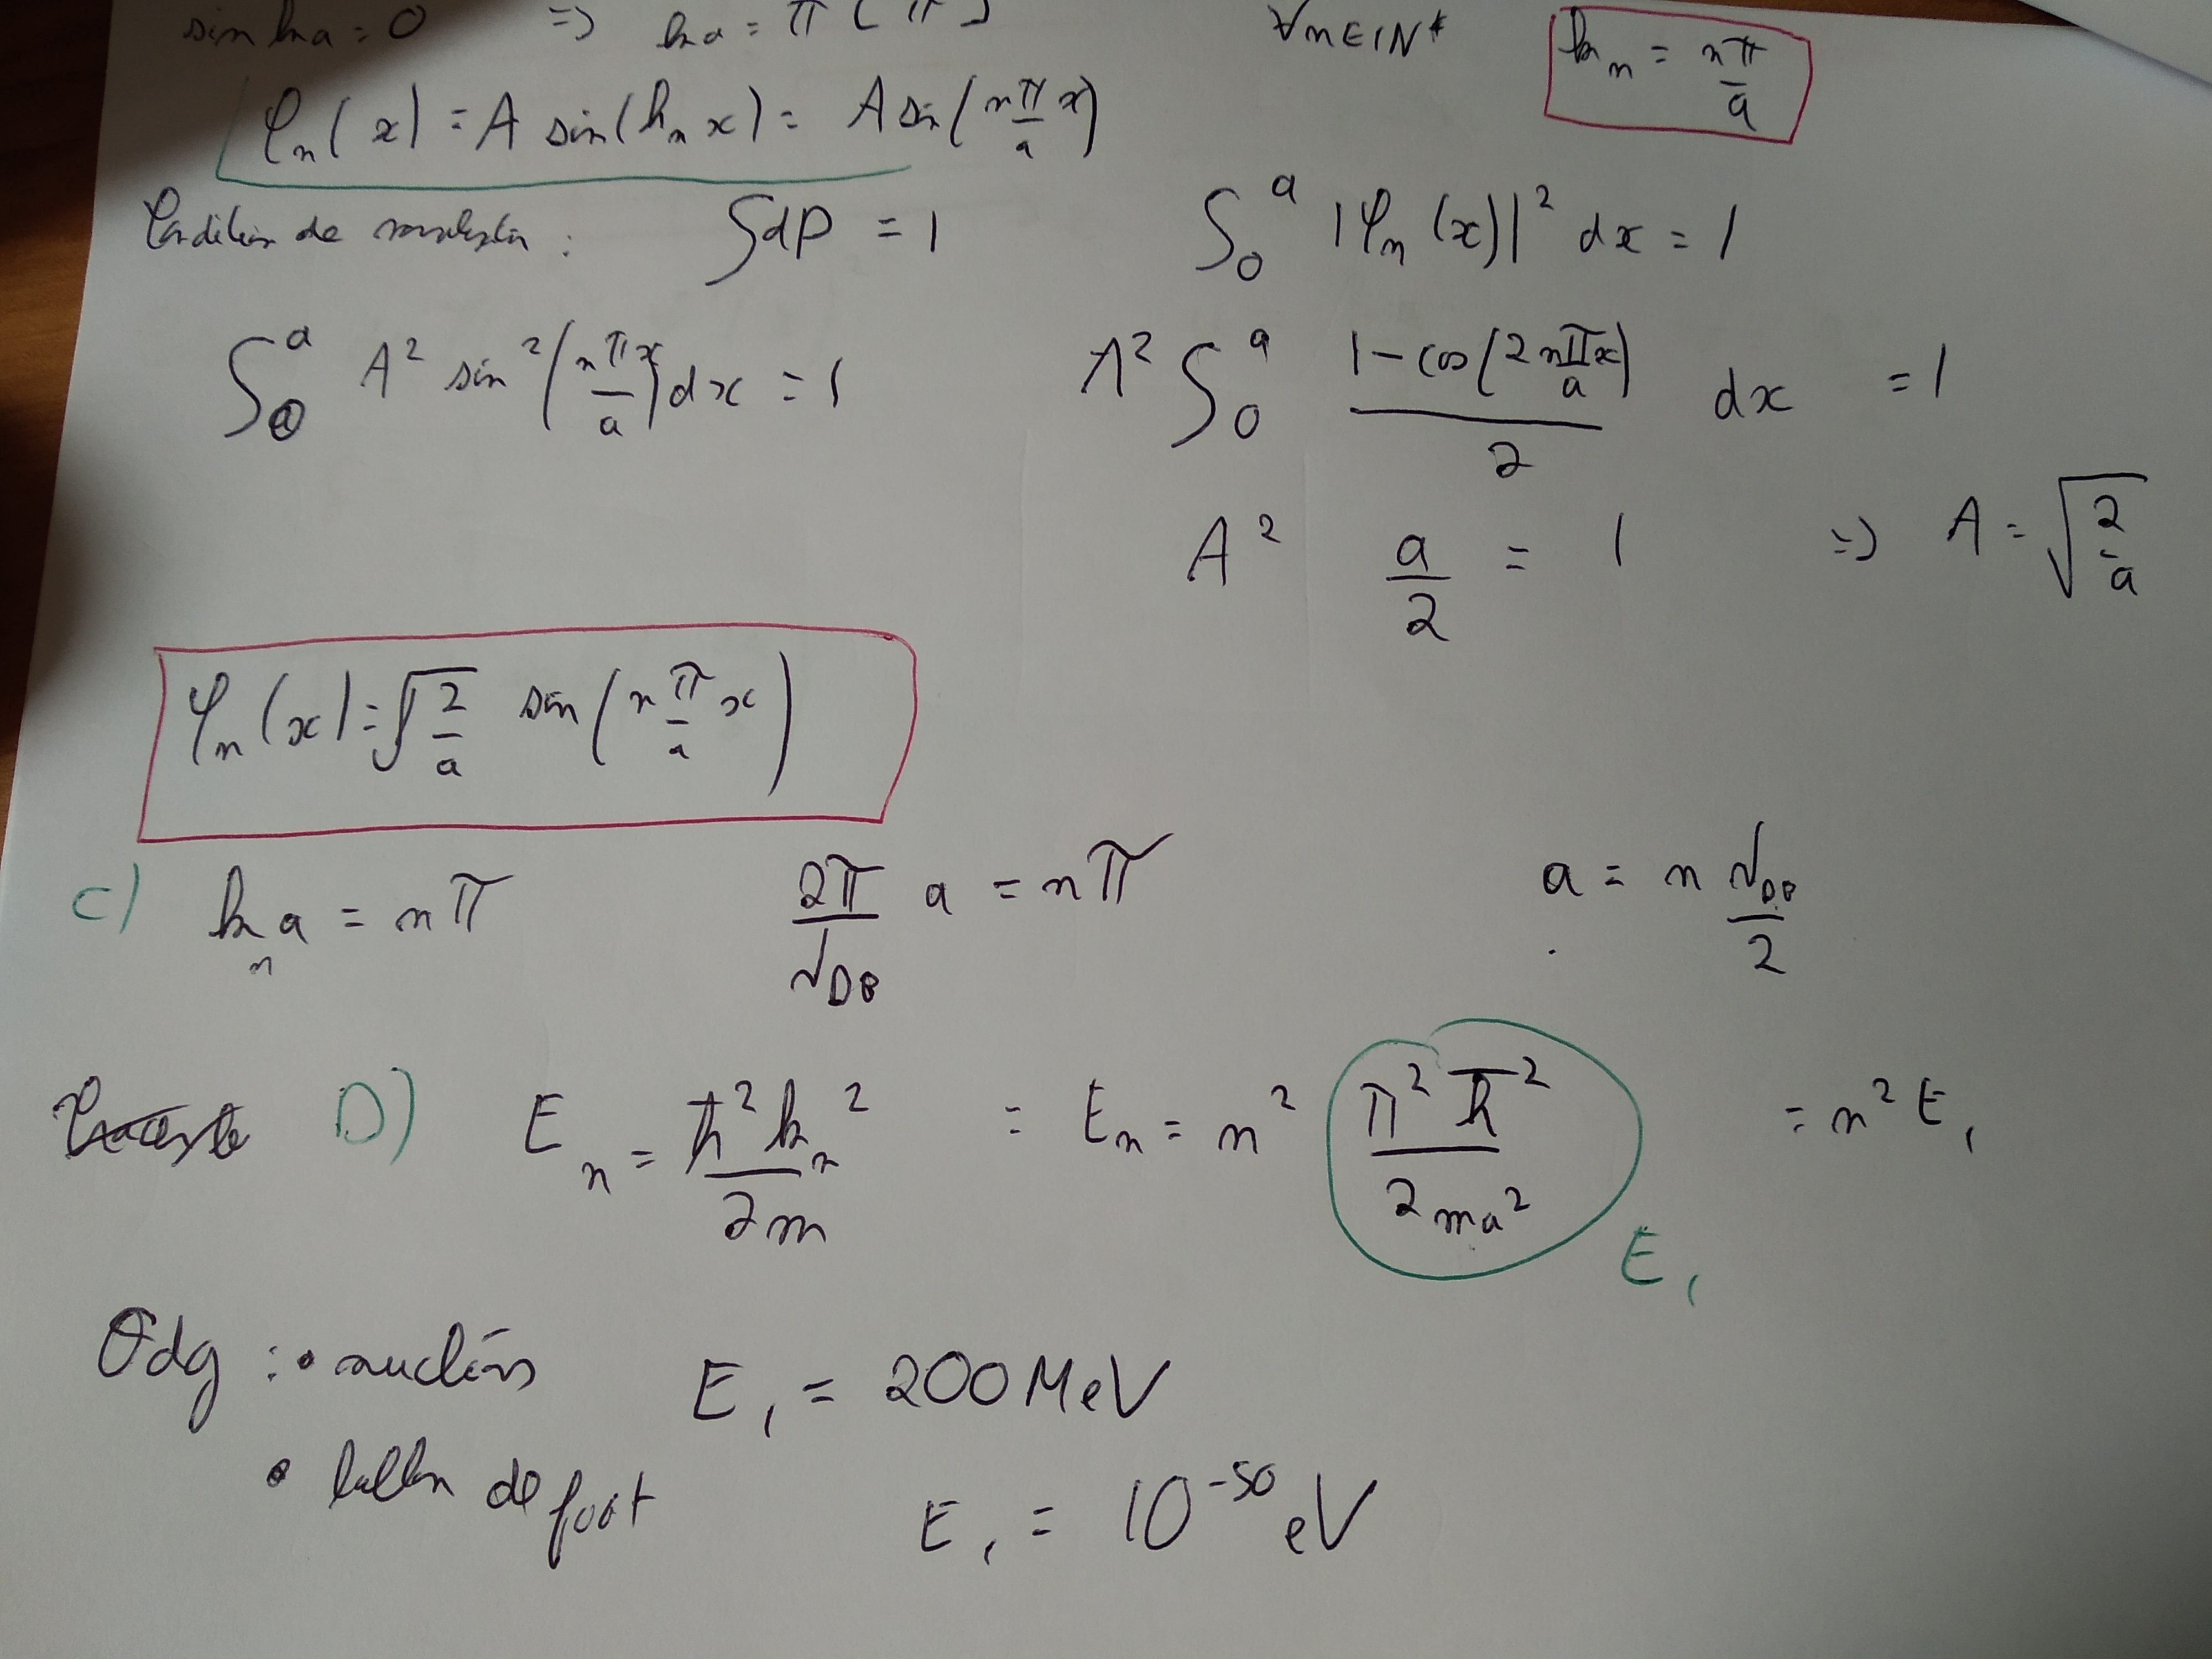 sin ka = 0 => ka = π [π] ∀n∈IN* kₙ = nπ/a
φₙ(x) = A sin(kₙ x) = A sin(nπ/a x)
Condition de normalisation : ∫dP = 1 ∫₀ᵃ |φₙ(x)|² dx = 1
∫₀ᵃ A² sin²(nπx/a) dx = 1 A² ∫₀ᵃ (1 - cos(2nπx/a))/2 dx = 1
A² a/2 = 1 => A = √(2/a)
φₙ(x) = √(2/a) sin(n π/a x)
C) kₙ a = nπ 2π/λ_DB a = nπ a = n λ_DB/2
D) Eₙ = ħ²kₙ²/2m = Eₙ = n² π²ħ²/2ma² = n² E₁
E₁
Odg : • nucléons E₁ = 200 MeV
• ballon de foot E₁ = 10⁻⁵⁰ eV